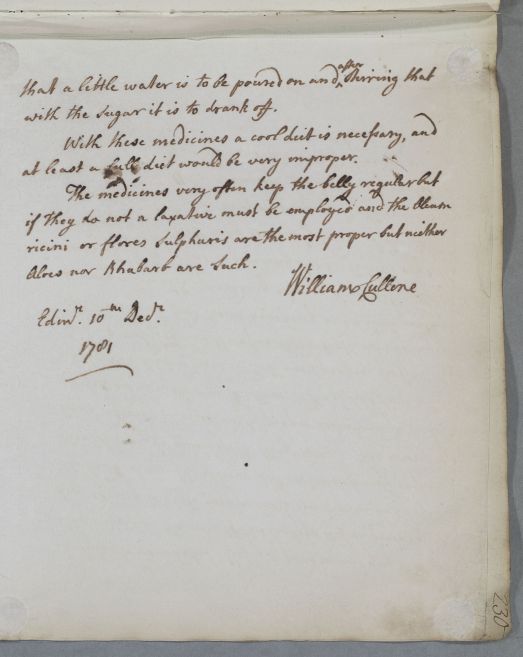 that a little water is to be poured on and after stirring that
with the sugar it is to drank off.
With these medicines a cool diet is necessary, and
at least a full diet would be very improper.
The medicines very often keep the belly regular but
if they do not a laxative must be employed and the Oleum
ricini or flores Sulphuris are the most proper but neither
Aloes nor Rhubarb are such.
William Cullene
Edinr. 10th Decr.
1781
230